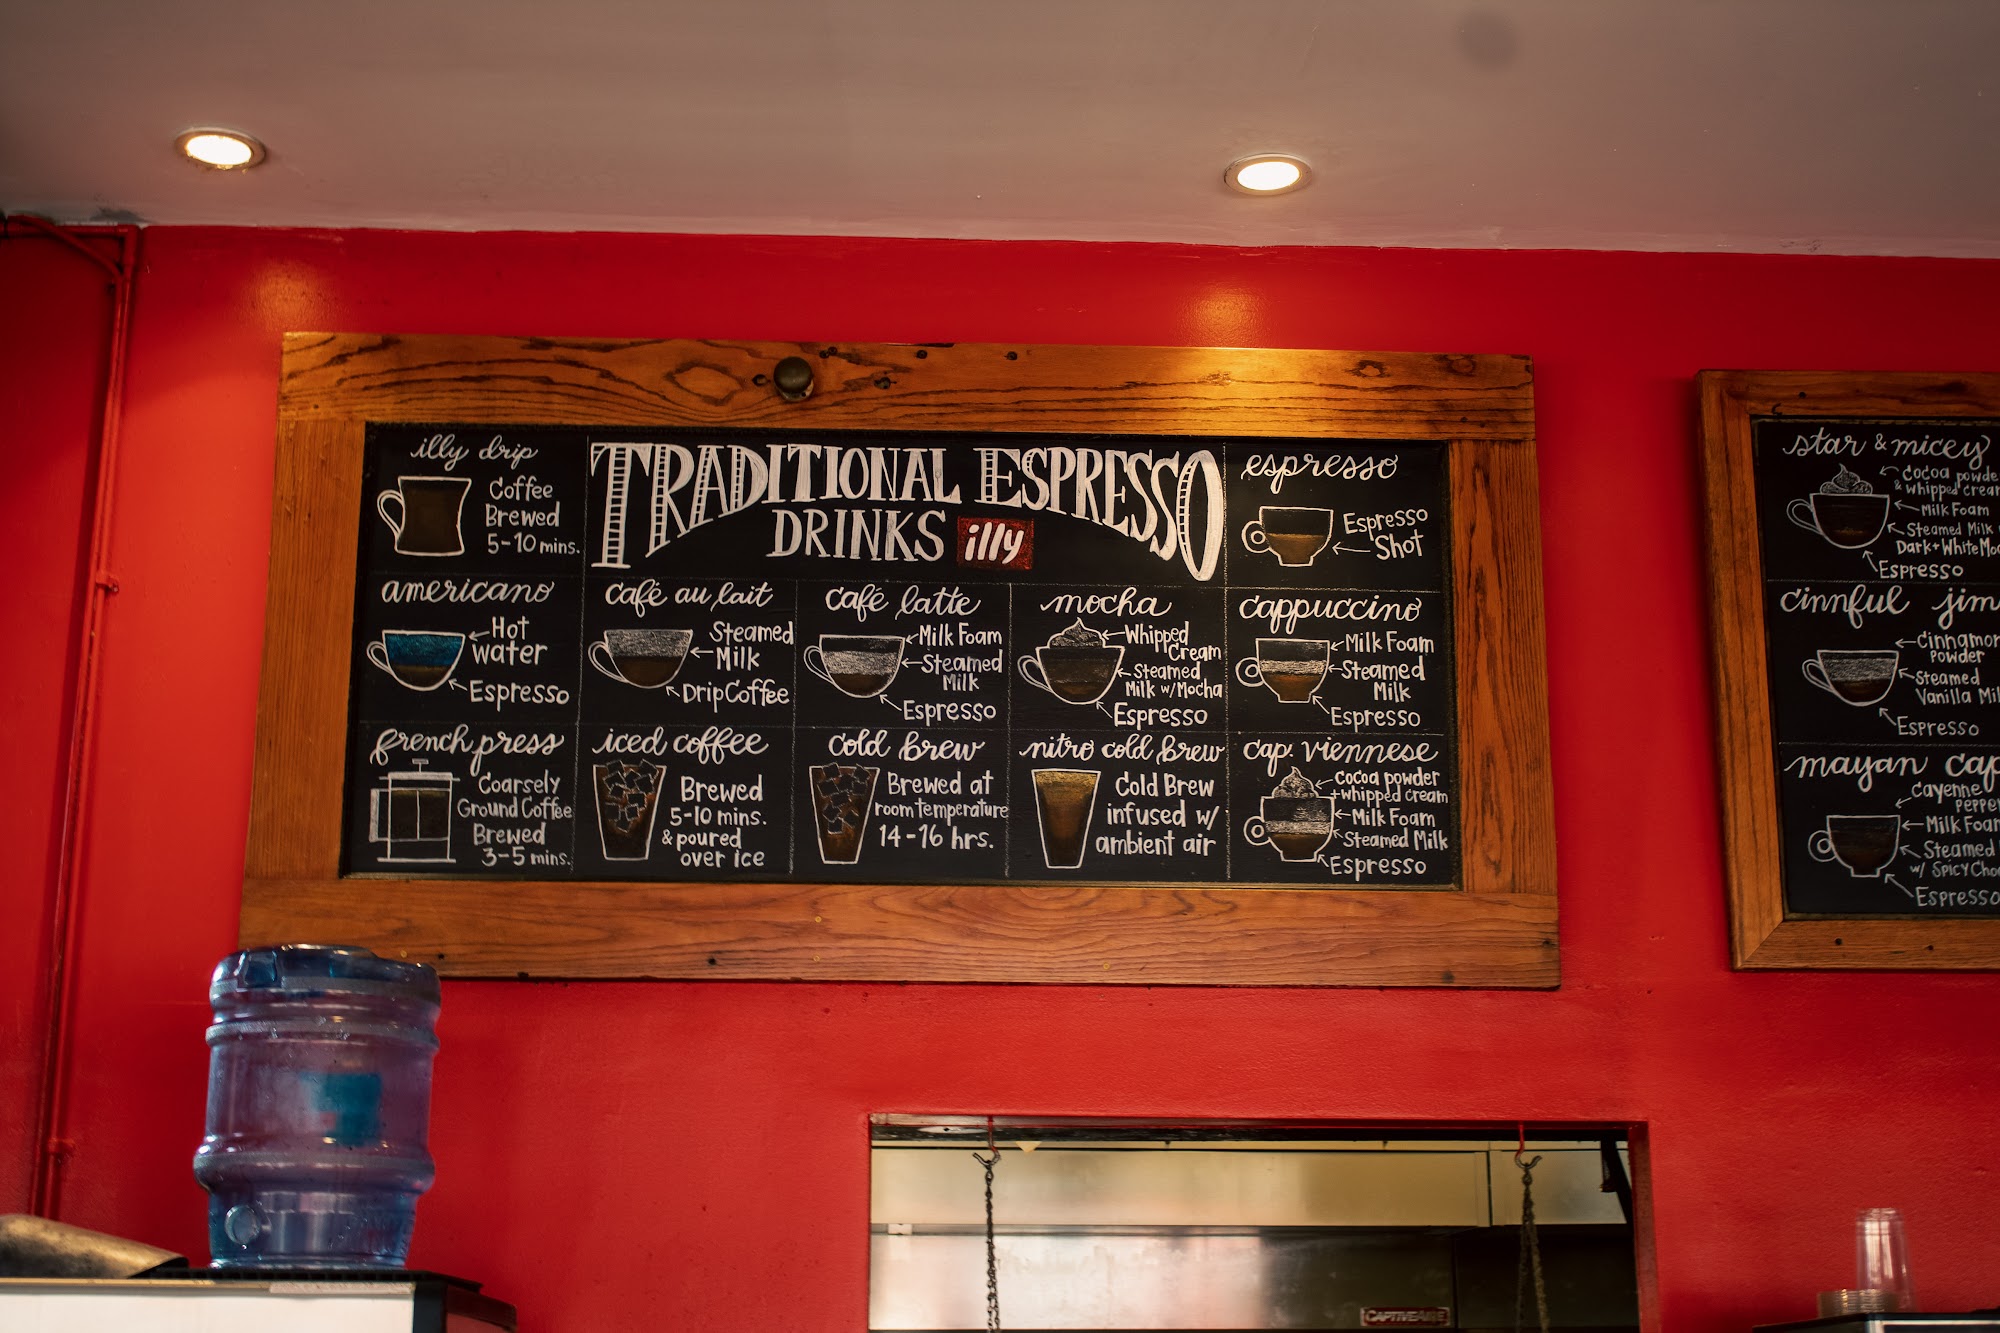 illy drip
Coffee
Brewed
5-10 mins.
TRADITIONAL ESPRESSO
DRINKS illy
espresso
Espresso
Shot
americano
Hot
water
Espresso
café au lait
Steamed
Milk
Drip Coffee
café latte
Milk Foam
Steamed
Milk
Espresso
mocha
Whipped
Cream
Steamed
Milk w/Mocha
Espresso
cappuccino
Milk Foam
Steamed
Milk
Espresso
french press
Coarsely
Ground Coffee
Brewed
3-5 mins.
iced coffee
Brewed
5-10 mins.
& poured
over ice
cold brew
Brewed at
room temperature
14-16 hrs.
nitro cold brew
Cold Brew
infused w/
ambient air
cap. viennese
cocoa powder
+ whipped cream
Milk Foam
Steamed Milk
Espresso
star & micey
cocoa powde
& whipped crean
Milk Foam
Steamed Milk
Dark + White Mo
Espresso
cinnful jim
Cinnamon
Powder
Steamed
Vanilla Mil
Espresso
mayan cap
Cayenne
Pepper
Milk Foam
Steamed
w/ Spicy Cho
Espresso
CAPTIVEAIRE